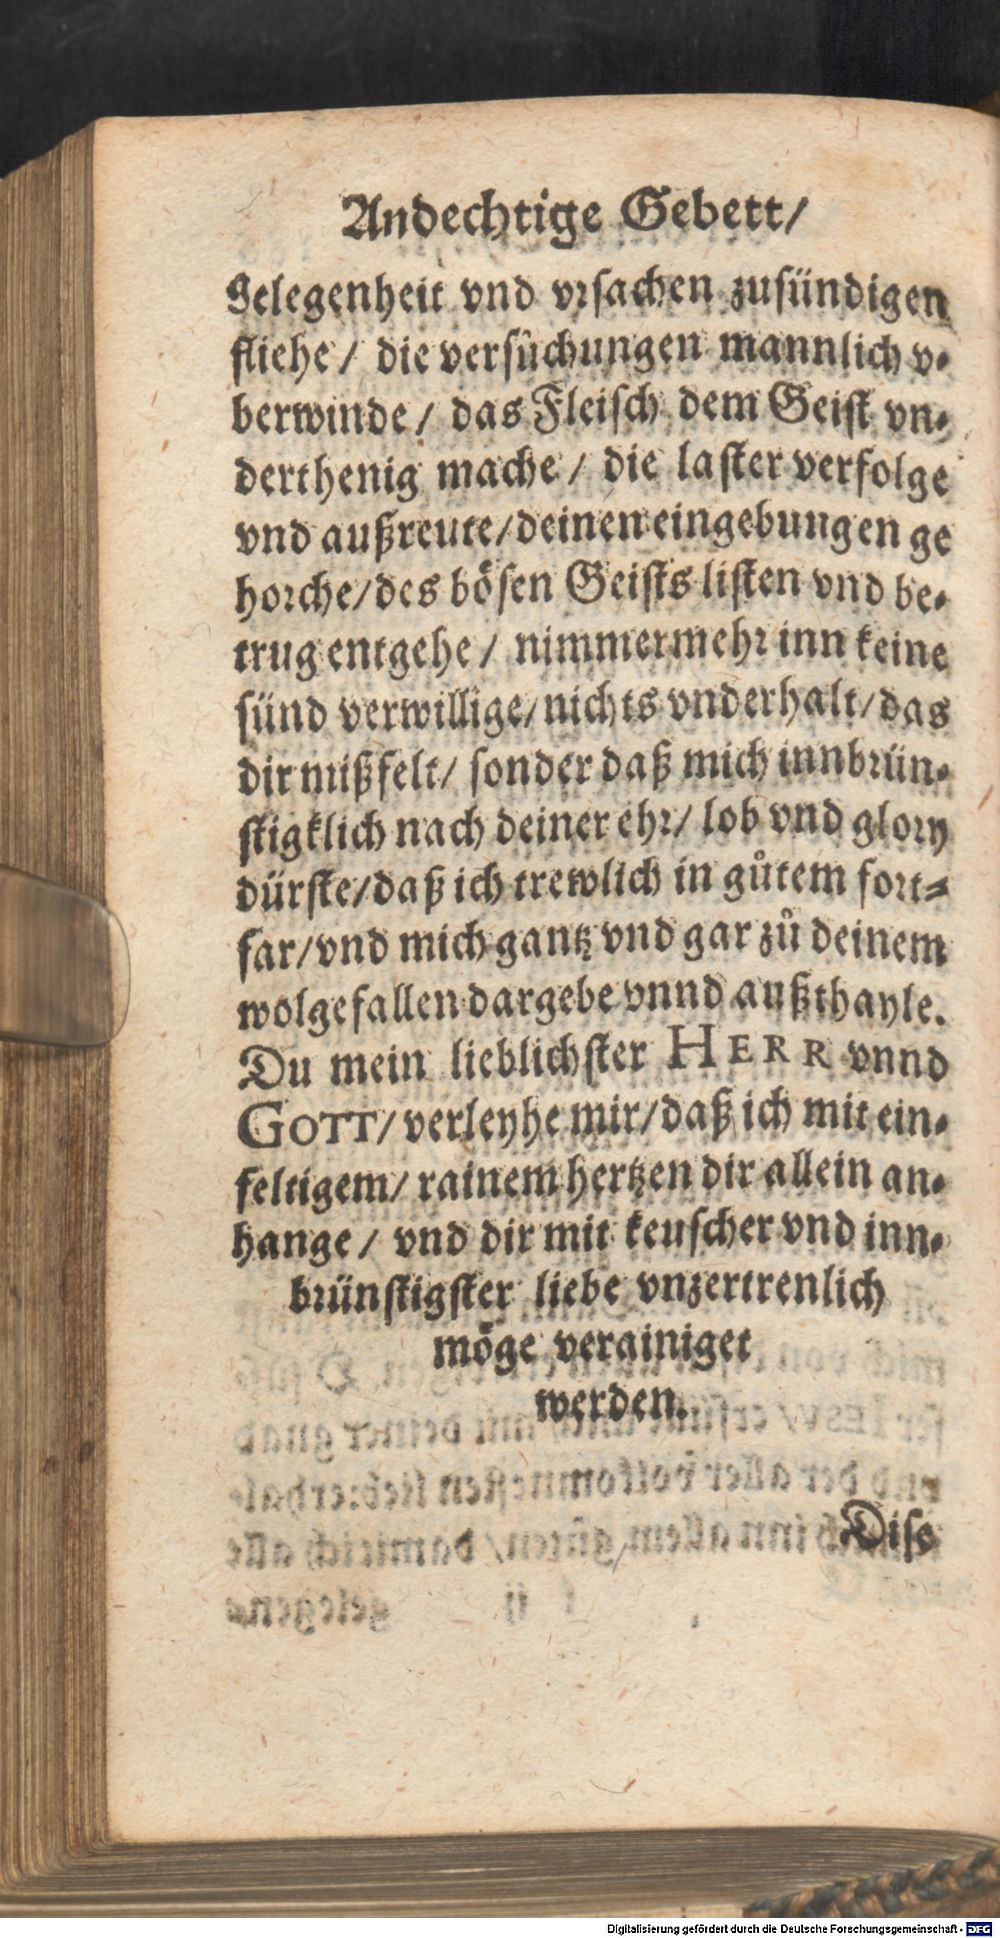 Andechtige Gebett/
gelegenheit vnd vrsachen zusündigen
fliehe/ die versůchungen mannlich v⸗
berwinde/ das Fleisch dem Geist vn⸗
derthenig mache/ die laster verfolge
vnd außreute/deinen eingebungen ge
horche/des bösen Geists listen vnd be⸗
trug entgehe/ nimmermehr inn keine
sünd verwillige/nichts vnderhalt/das
dir mißfelt/ sonder daß mich innbrün⸗
stigklich nach deiner ehr/ lob vnd glory
dürste/daß ich trewlich in gůtem fort⸗
far/vnd mich gantz vnd gar zů deinem
wolgefallen dargebe vnnd außthayle.
Du mein lieblichster HERR vnnd
GOTT/verleyhe mir/daß ich mit ein⸗
feltigem/ rainem hertzen dir allein an⸗
hange/ vnd dir mit keuscher vnd inn⸗
brünstigster liebe vnzertrenlich
möge verainiget
werden.
Dise
Digitalisierung gefördert durch die Deutsche Forschungsgemeinschaft - DFG